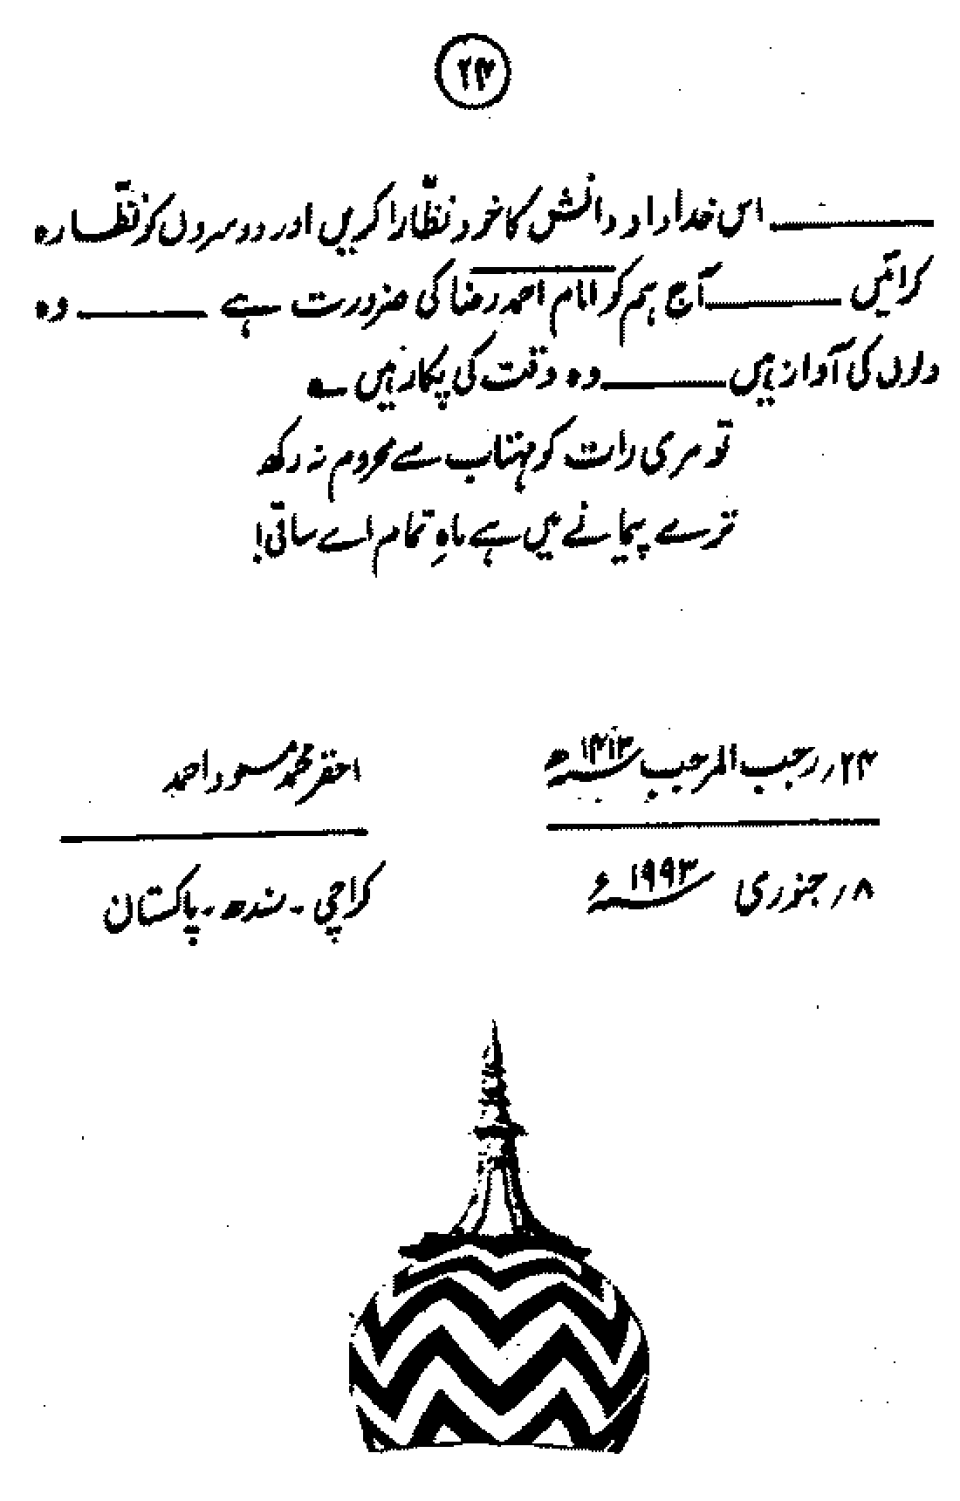 ۲۴
ـــــــ اس خداداد دانش کا خود نظّارا کریں اور دوسروں کو نظّارہ
کرائیں ـــــــ آج ہم کو امام احمد رضا کی ضرورت ہے ـــــــ وہ
دلوں کی آواز ہیں ـــــــ وہ وقت کی پکار ہیں ؎
تو مری رات کو مہتاب سے محروم نہ رکھ
ترے پیمانے میں ہے ماہِ تمام اے ساقی!
۲۴؍ رجب المرجب ۱۴۱۳ھ
احقر محمد مسعود احمد
۸؍ جنوری ۱۹۹۳ء
کراچی ۔ سندھ ۔ پاکستان